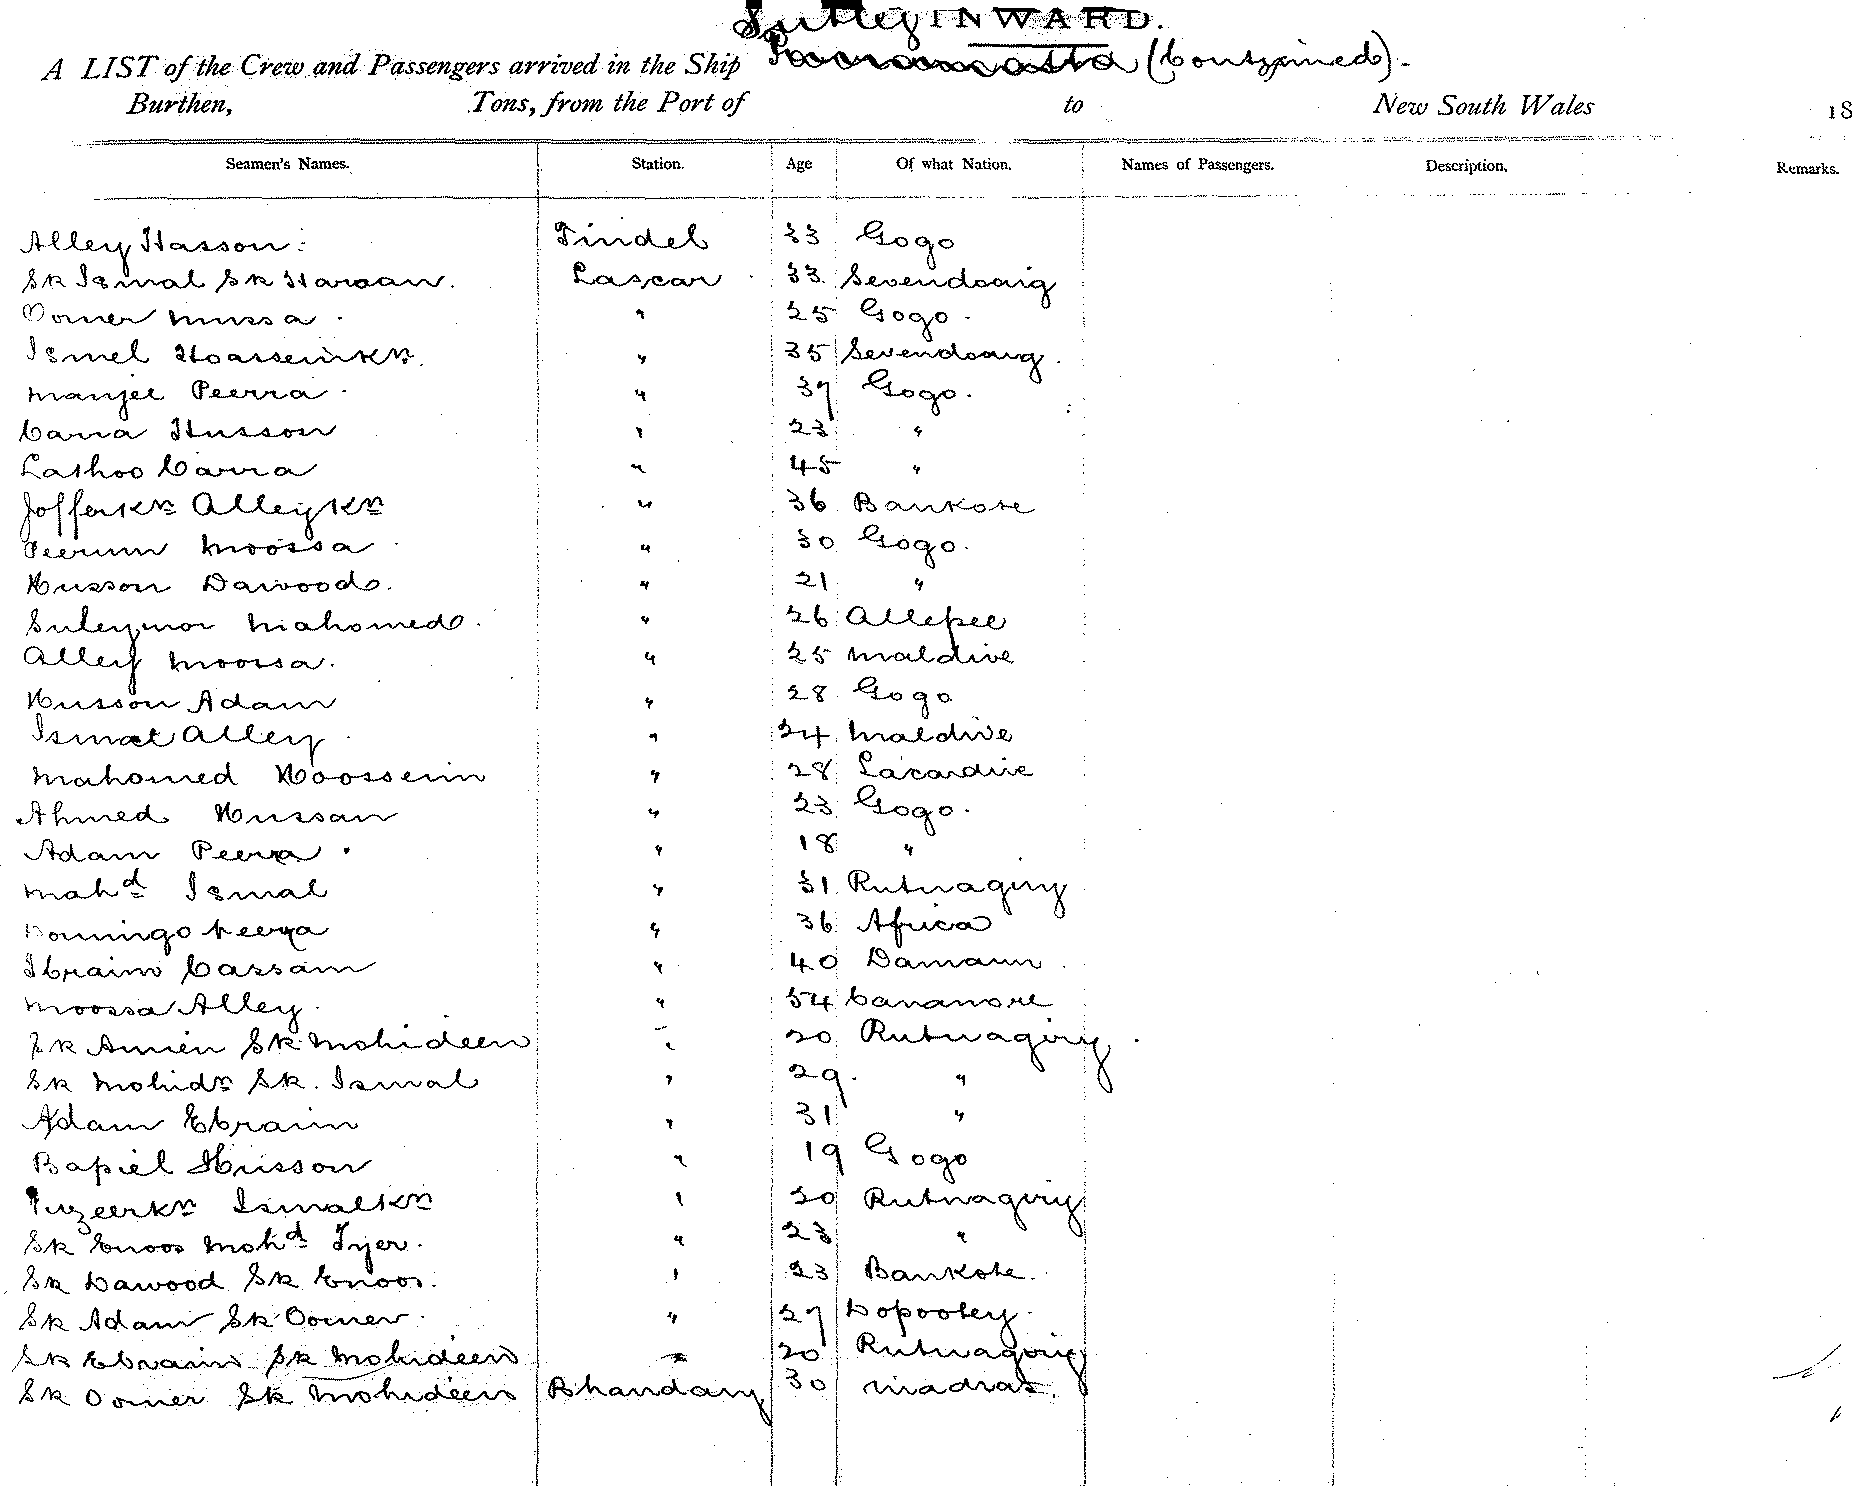 Sutlej INWARD.
A LIST of the Crew and Passengers arrived in the Ship Parramatta (Continued).
Burthen, Tons, from the Port of to New South Wales 18
Seamen's Names. Station. Age Of what Nation. Names of Passengers. Description. Remarks.
Alley Hasson Tindel 33 Gogo
Sk Ismal Sk Hassan Lascar 33
Oomer Mussa " 25 Gogo
Ismel Hoasseinkn " 35
Manjee Peerra " 37 Gogo.
Carra Husson " 23 "
Lathoo Carra " 45 "
Jofferkn Alleykn " 36 Bankote
Peerun Moossa " 30 Gogo.
Husson Dawood. " 21 "
Suleymor Mahomed " 26 Allepee
Alley Moossa. " 25 Maldive
Husson Adam " 28 Gogo
Ismal Alley " 24 Maldive
Mahomed Hoossein " 28 Lacardive
Ahmed Hussan " 23 Gogo.
Adam Peera " 18 "
Mahd Ismal " 31 Rutnagiry
Domingo Peera " 36 Africa
Ibraim Cassam " 40 Damaun
Moossa Alley " 54 Cananore
Sk Amien Sk Mohideen " 20 Rutnagiry
Sk Mohidn Sk. Ismal " 29 "
Adam Ebraim " 31 "
Bapiel Husson " 19 Gogo
Ismalkn " 20 Rutnagiry
Sk Enoos Mohd Tyer " 23 "
Sk Dawood Sk Enoos. " 23 Bankote
Sk Adam Sk Oomer " 27 Dopooley
Sk Ebraim Sk Mohideen " 20 Rutnagiry
Sk Oomer Sk Mohideen Bhandary 30 Madras.